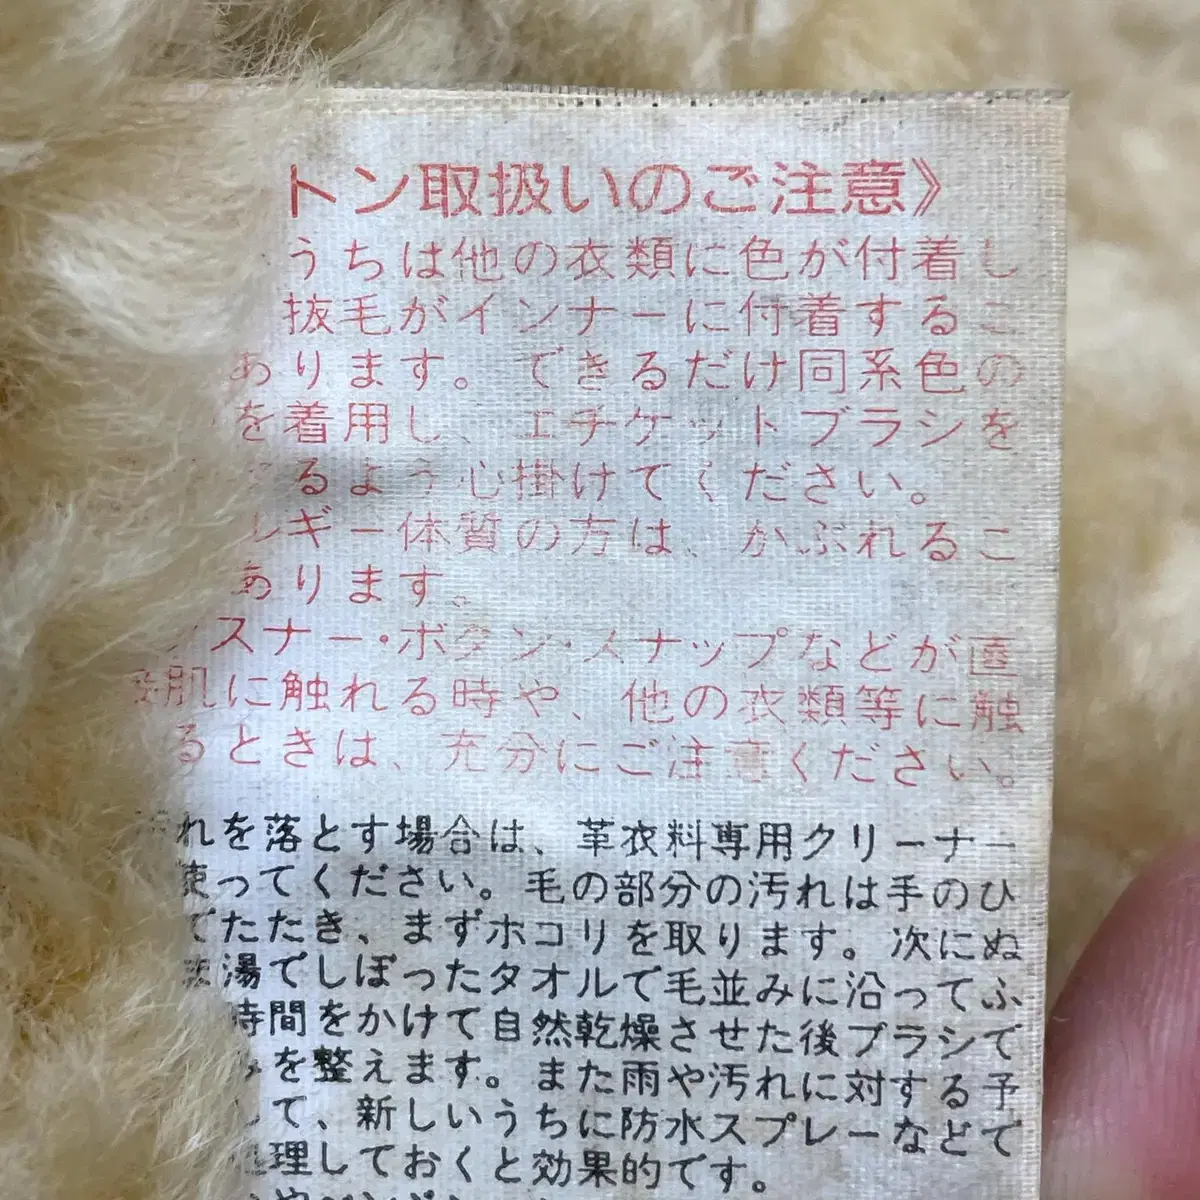 トン取扱いのご注意》
うちは他の衣類に色が付着し
抜毛がインナーに付着するこ
あります。できるだけ同系色の
を着用し、エチケットブラシを
るよう心掛けてください。
ルギー体質の方は、かぶれるこ
あります。
スナー・ボタン・スナップなどが直
肌に触れる時や、他の衣類等に触
るときは、充分にご注意ください。
れを落とす場合は、革衣料専用クリーナー
使ってください。毛の部分の汚れは手のひ
でたたき、まずホコリを取ります。次にぬ
湯でしぼったタオルで毛並みに沿ってふ
時間をかけて自然乾燥させた後ブラシで
を整えます。また雨や汚れに対する予
して、新しいうちに防水スプレーなどで
処理しておくと効果的です。